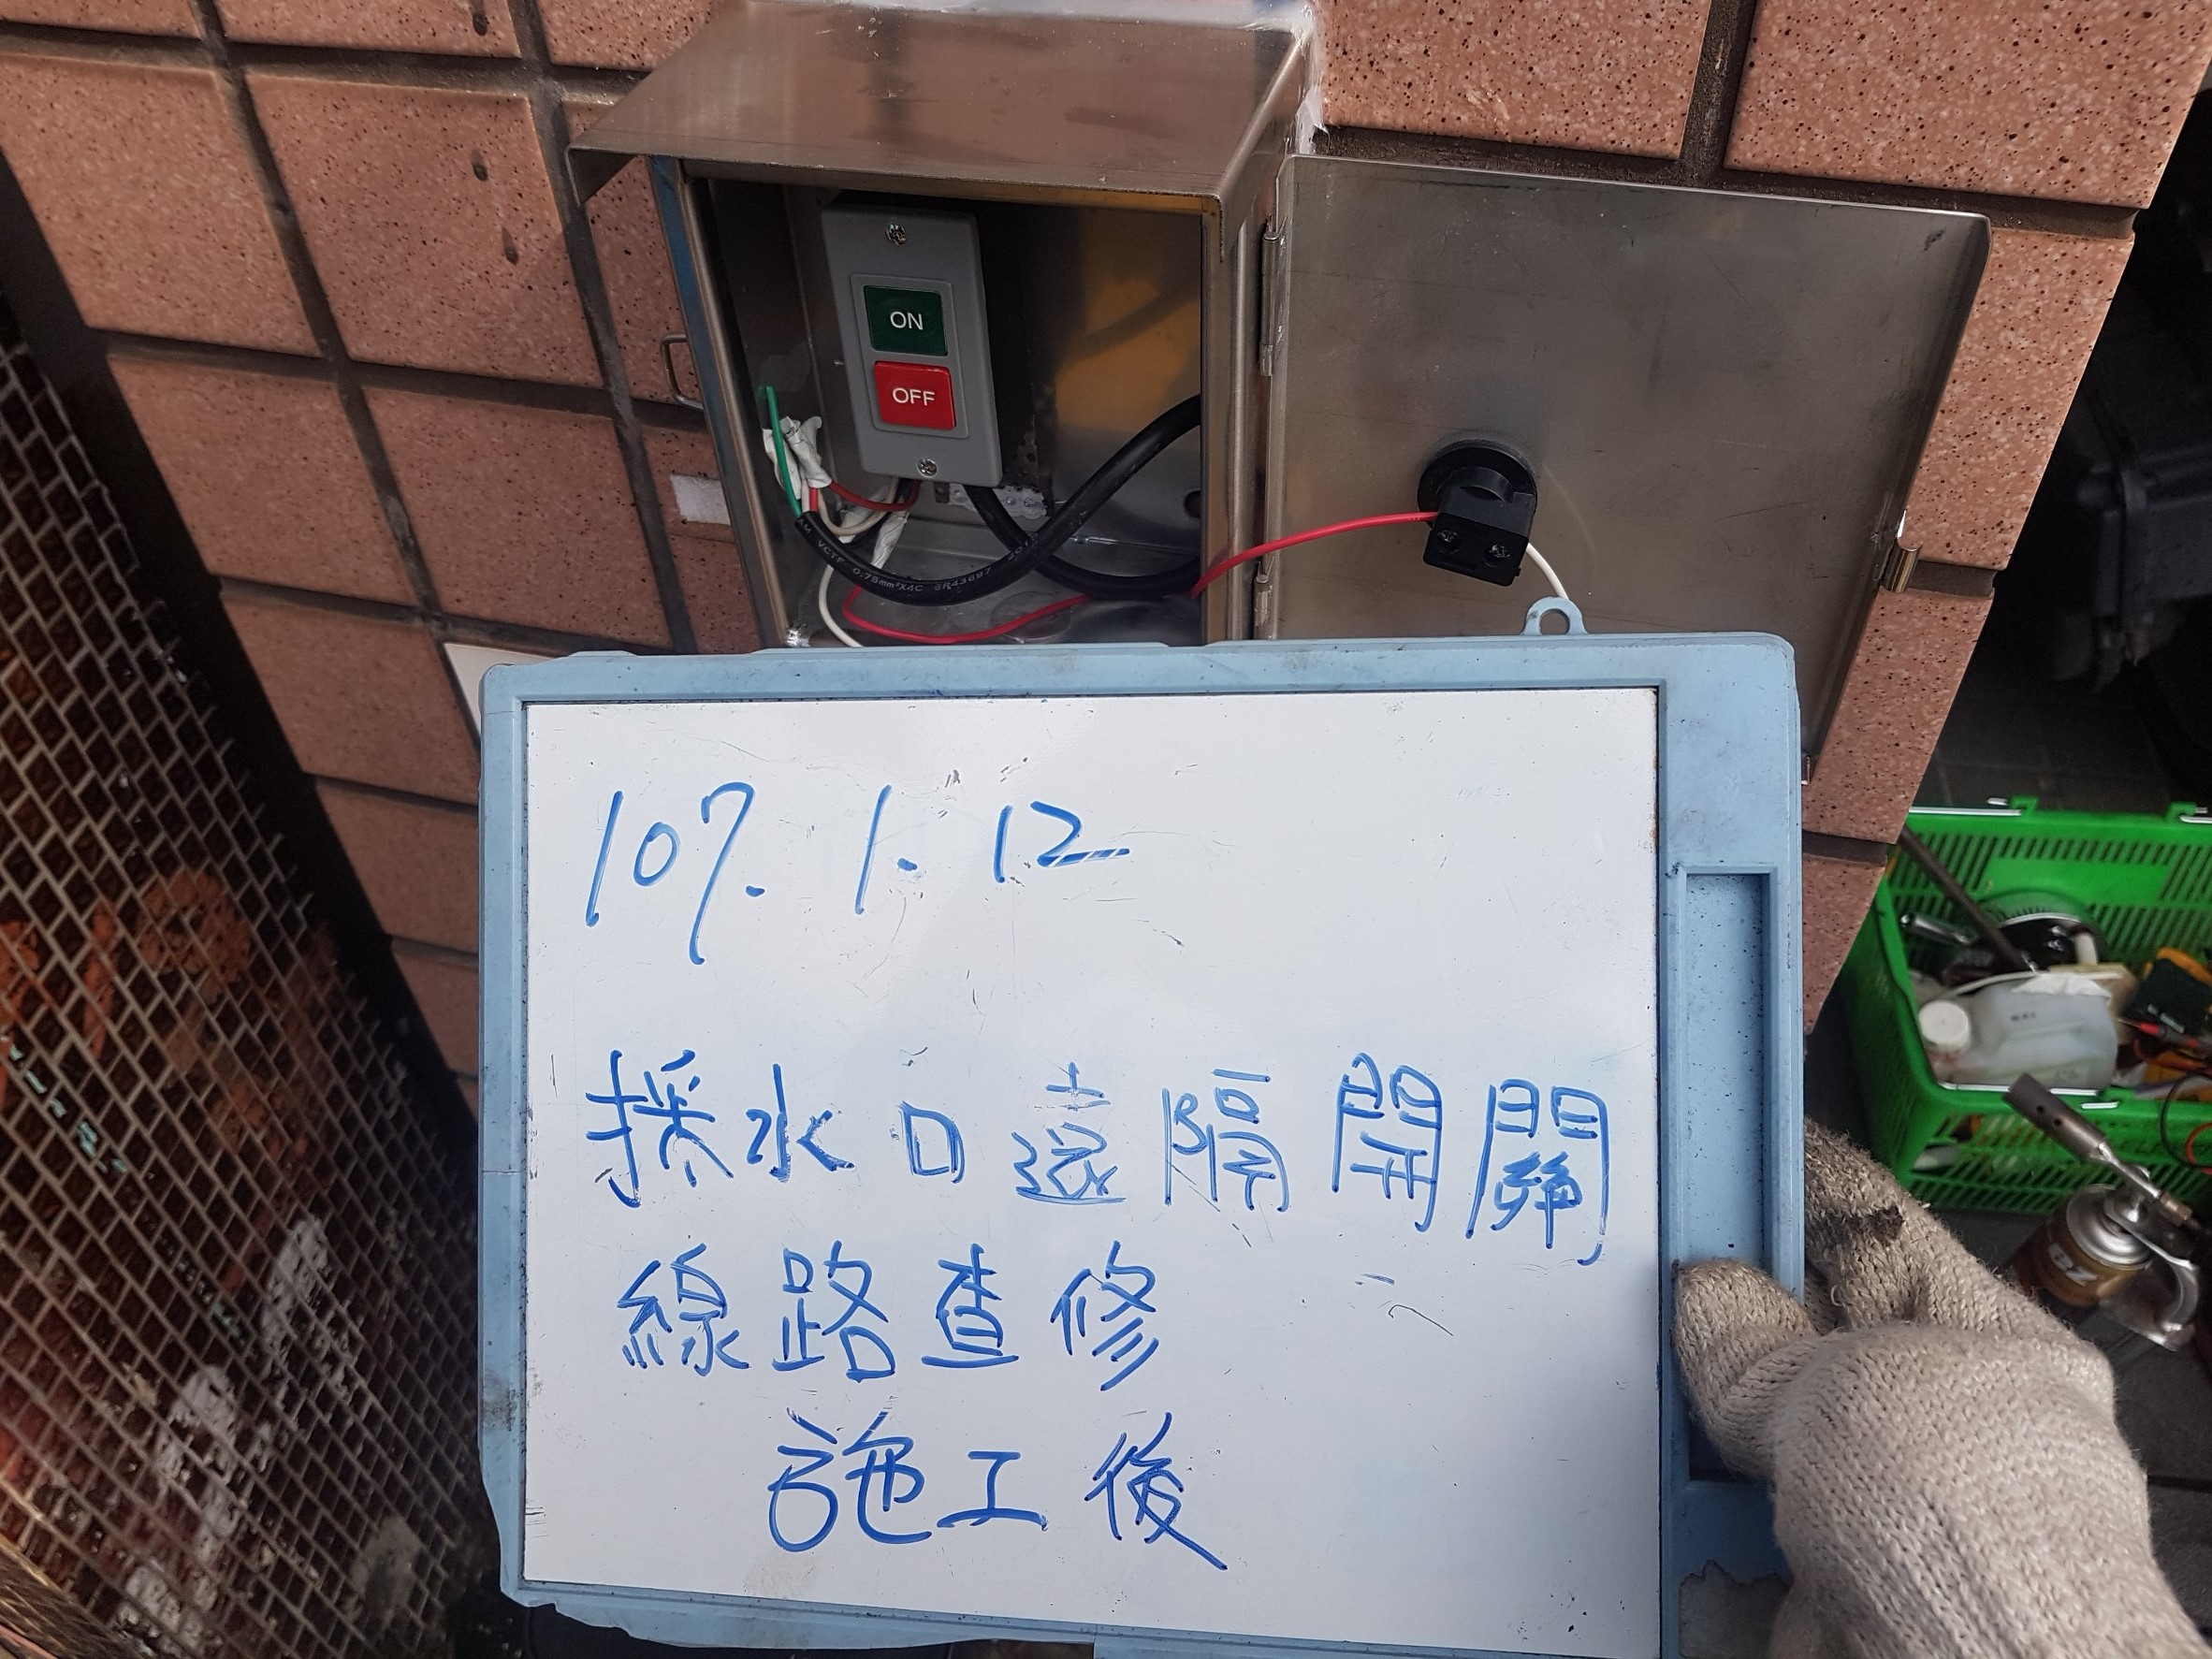 ON
OFF
VCTF 0.75mm²X4C
107. 1. 12
採水口遠隔開關
線路查修
施工後